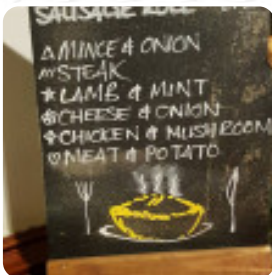 SAUSAGE ROLL
△ MINCE & ONION
STEAK
★ LAMB & MINT
CHEESE & ONION
CHICKEN & MUSHROOM
♡ MEAT & POTATO